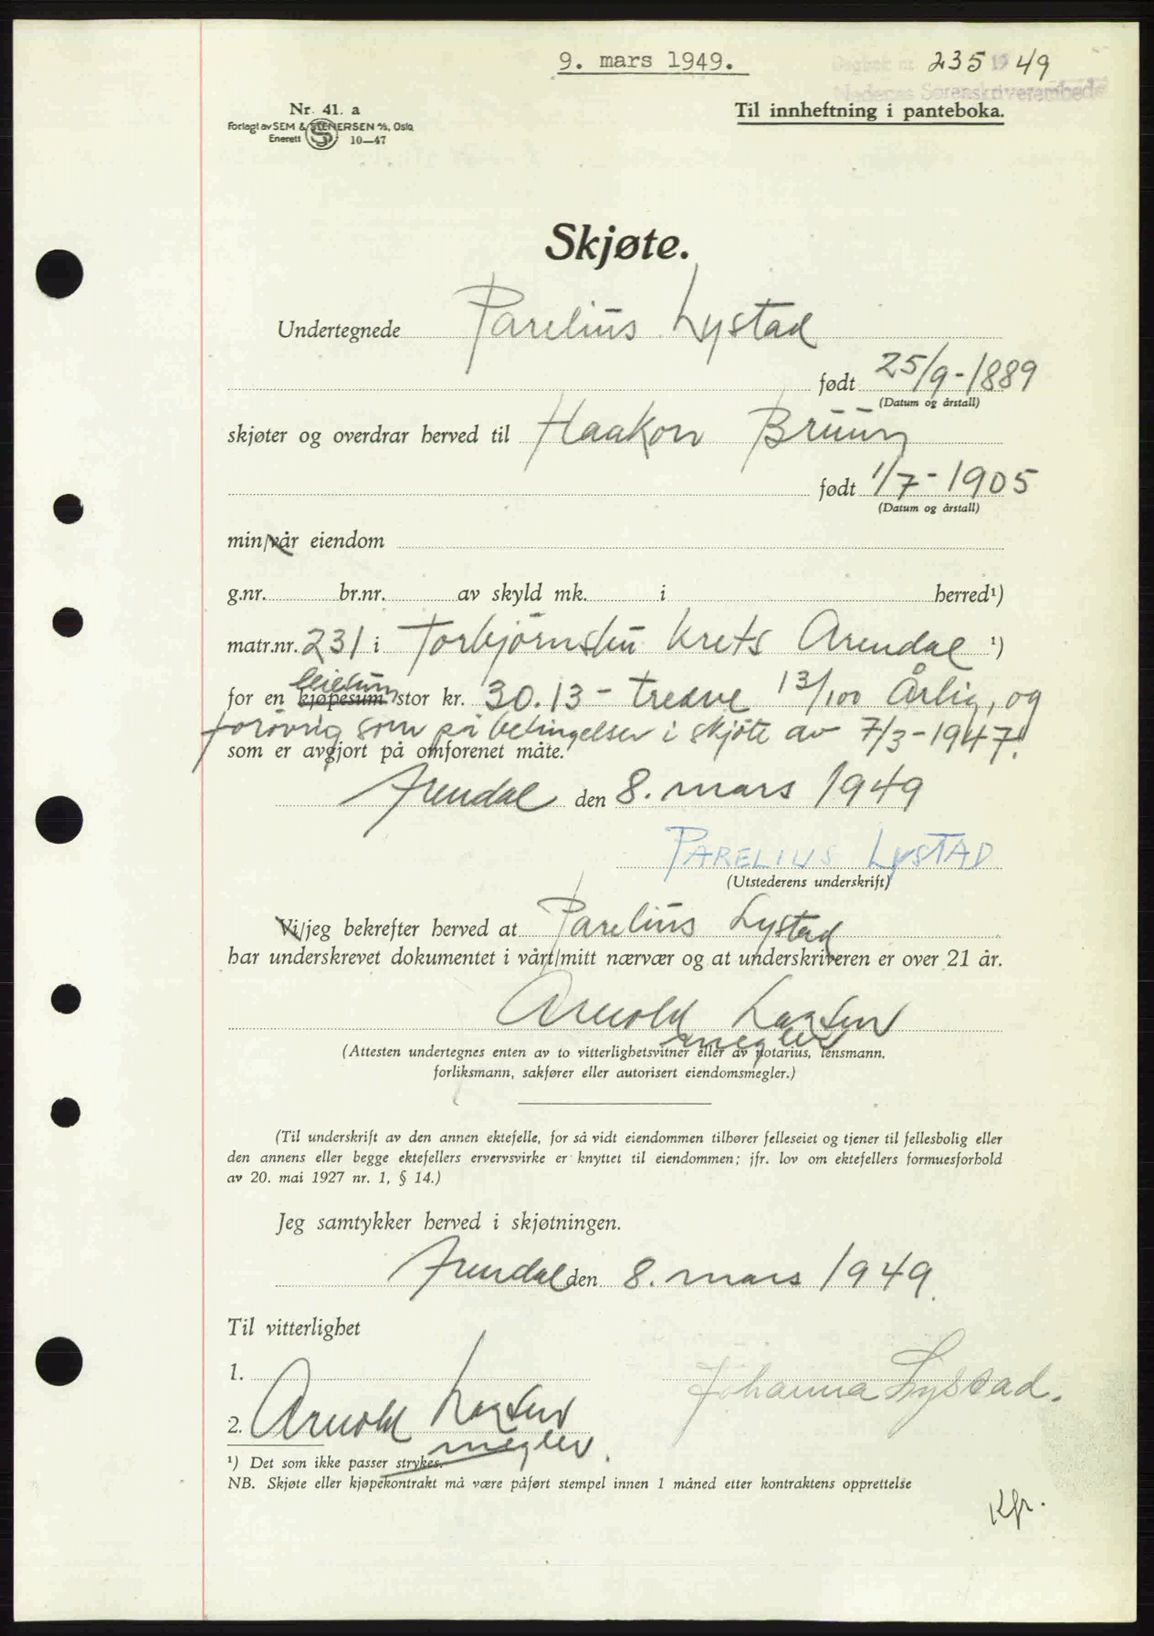 9. mars 1949.
Dagbok nr. 235 19 49
Nedenes Sorenskriverembede
Nr. 41. a
Forlagt av SEM & STENERSEN A/S, Oslo
Enerett 10—47
Til innheftning i panteboka.
Skjøte.
Undertegnede Parelius Lystad
født 25/9-1889
(Datum og årstall)
skjøter og overdrar herved til Haakon Bruun
født 1/7-1905
(Datum og årstall)
min/vår eiendom
g.nr. br.nr. av skyld mk. i herred¹)
matr.nr. 231 i Torbjørnsbu Krets Arendal ¹)
leiesum
for en kjøpesum stor kr. 30.13- tredve 13/100 Årlig, og
forøvrig som på betingelser i skjøte av 7/3-1947.
som er avgjort på omforenet måte.
Arendal den 8. mars 1949
PARELIUS LYSTAD
(Utstederens underskrift)
Vi/jeg bekrefter herved at Parelius Lystad
har underskrevet dokumentet i vårt/mitt nærvær og at underskriveren er over 21 år.
Arnold
megler
(Attesten undertegnes enten av to vitterlighetsvitner eller av notarius, lensmann,
forliksmann, sakfører eller autorisert eiendomsmegler.)
(Til underskrift av den annen ektefelle, for så vidt eiendommen tilhører felleseiet og tjener til fellesbolig eller
den annens eller begge ektefellers ervervsvirke er knyttet til eiendommen; jfr. lov om ektefellers formuesforhold
av 20. mai 1927 nr. 1, § 14.)
Jeg samtykker herved i skjøtningen.
Arendal den 8. mars 1949.
Til vitterlighet
1.
Johanna Lystad.
2. Arnold
megler.
¹) Det som ikke passer strykes.
NB. Skjøte eller kjøpekontrakt må være påført stempel innen 1 måned etter kontraktens opprettelse
Kfr.